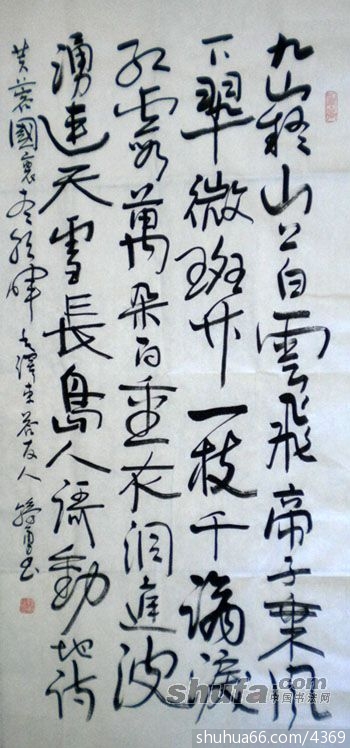 九嶷山上白雲飛帝子乘風
下翠微斑竹一枝千滴淚
紅霞萬朵百重衣洞庭波
湧連天雪長島人謌動地詩
芙蓉國裏盡朝暉 毛澤東答友人 書
shufa.com
中国书法网
shuhua66.com/4369